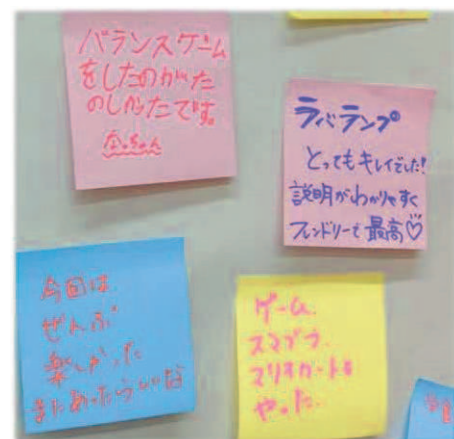 バランスゲーム
をしたのがた
のしかったです。
なっちゃん
ラバランプ
とってもキレイでした!
説明がわかりやすく
フレンドリーで最高♡
今回は
ぜんぶ
楽しかった
またあったらいいな
ゲーム
スマブラ
マリオカートを
やった